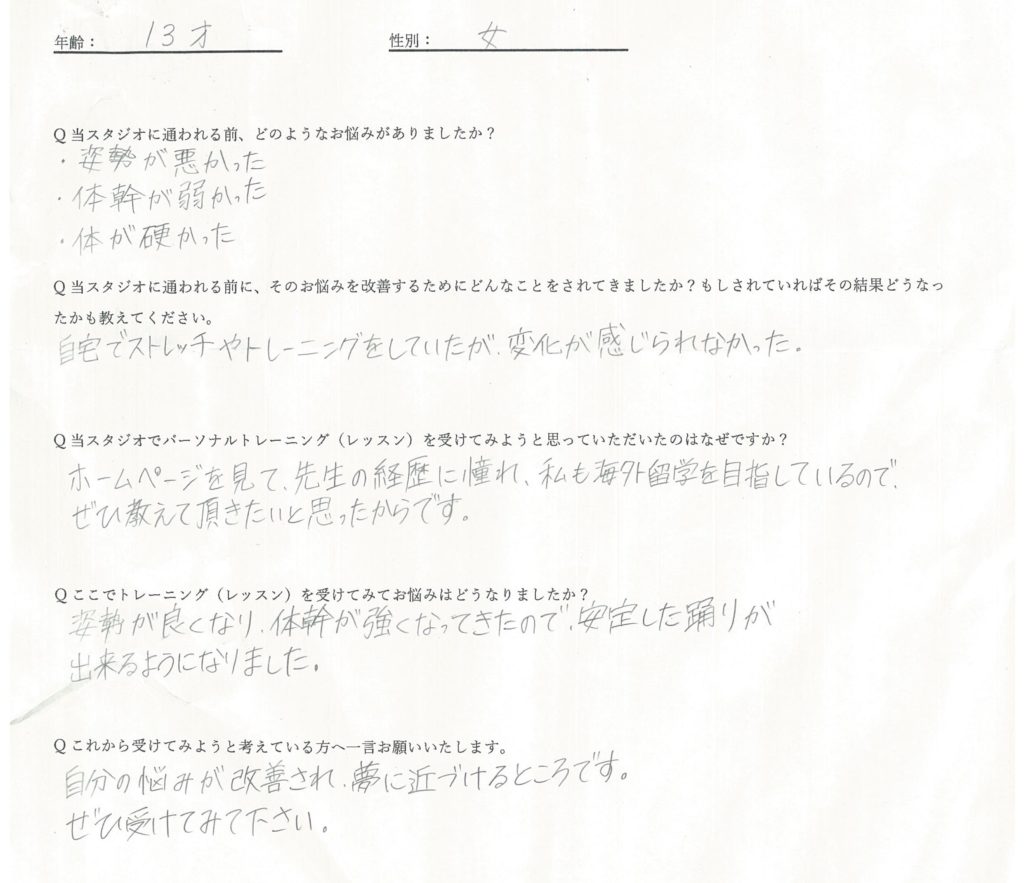 年齢： 13才 性別： 女
Q 当スタジオに通われる前、どのようなお悩みがありましたか？
・姿勢が悪かった
・体幹が弱かった
・体が硬かった
Q 当スタジオに通われる前に、そのお悩みを改善するためにどんなことをされてきましたか？もしされていればその結果どうなっ
たかも教えてください。
自宅でストレッチやトレーニングをしていたが、変化が感じられなかった。
Q 当スタジオでパーソナルトレーニング（レッスン）を受けてみようと思っていただいたのはなぜですか？
ホームページを見て、先生の経歴に憧れ、私も海外留学を目指しているので、
ぜひ教えて頂きたいと思ったからです。
Q ここでトレーニング（レッスン）を受けてみてお悩みはどうなりましたか？
姿勢が良くなり、体幹が強くなってきたので、安定した踊りが
出来るようになりました。
Q これから受けてみようと考えている方へ一言お願いいたします。
自分の悩みが改善され、夢に近づけるところです。
ぜひ受けてみて下さい。